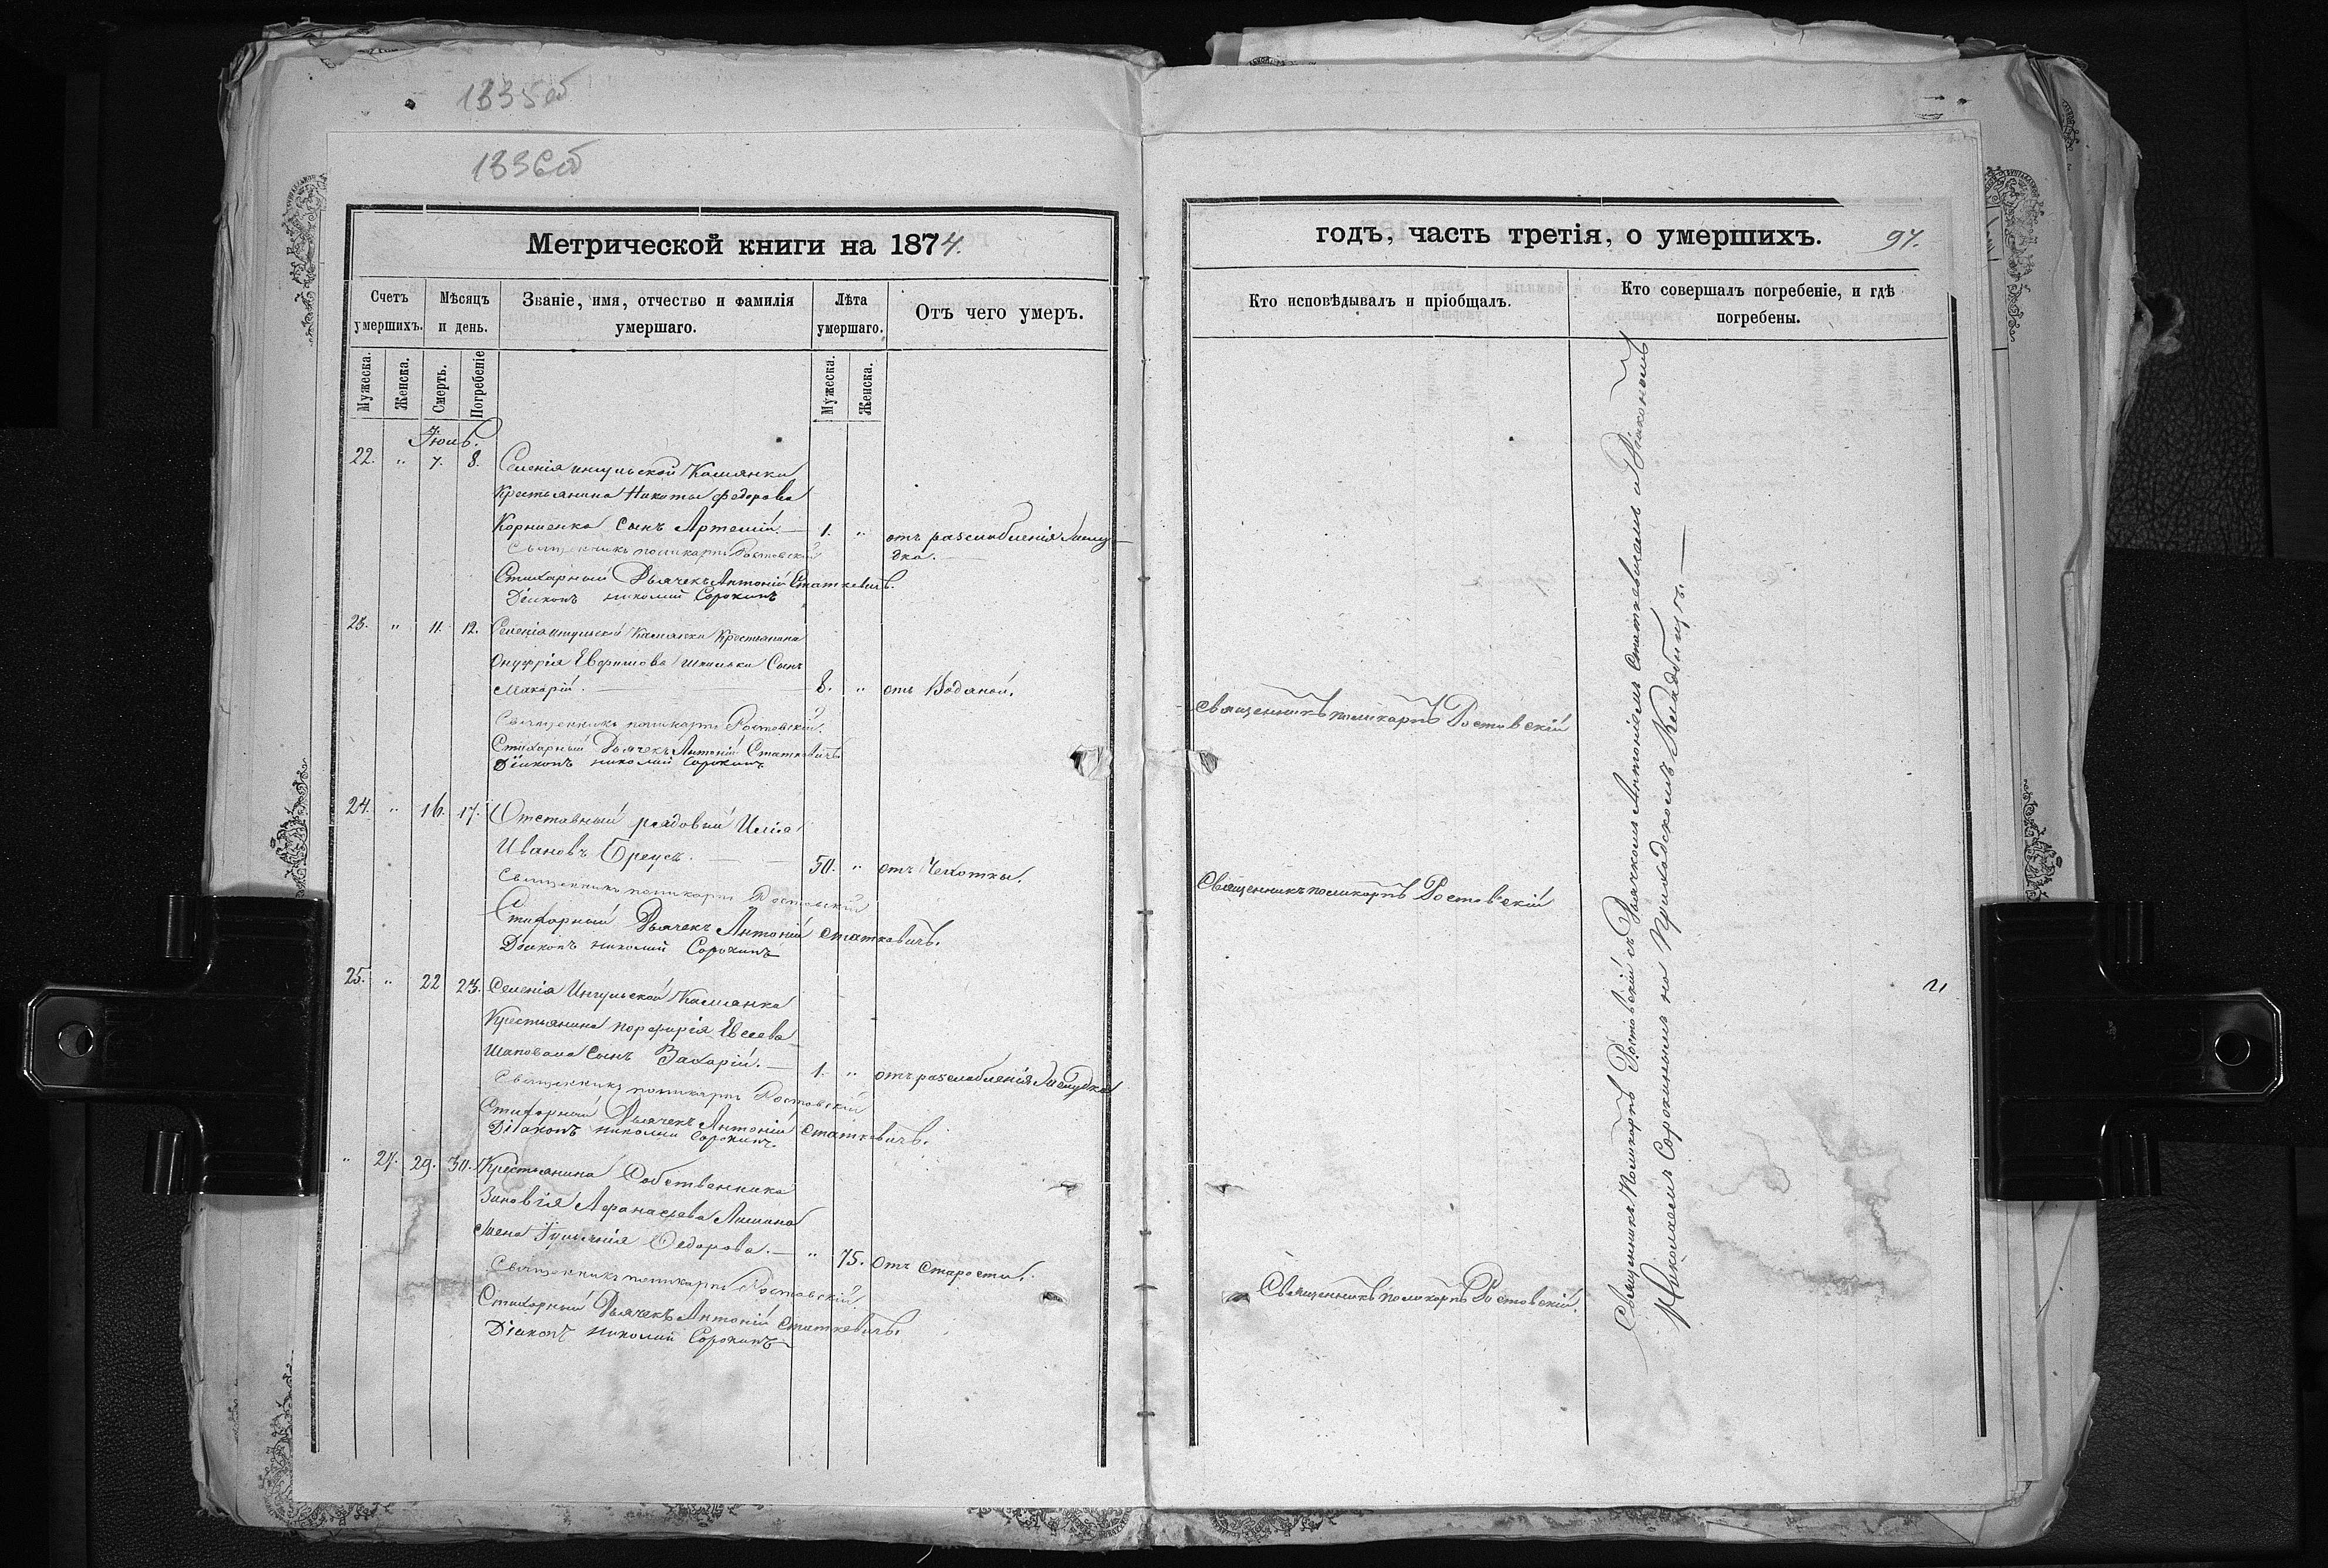 1335об
1336об
Метрической книги на 1874.
Счетъ умершихъ.
Мѣсяцъ и день.
Званіе, имя, отчество и фамилія умершаго.
Лѣта умершаго.
Отъ чего умеръ.
Мужеска.
Женска.
Смерть.
Погребеніе
Мужеска.
Женска.
Іюль.
22. " 7. 8. Селенія ингульской Камянки
Крестьянина Никиты Федорова
Корниенка Сынъ Артемій. — 1. " отъ разслабленія Желу-
дка. —
Священникъ поликарпъ Ростовскій
Стихарный Дьячекъ Антоній Статкевичъ.
Діаконъ николай Сорокинъ
23. " 11. 12. Селенія ингульской Камянки Крестьянина
Онуфрія Евфимова Сынъ
Макарій. — 8. " отъ Водяной.
Священникъ поликарпъ Ростовскій.
Стихарный Дьячекъ Антоній Статкевичъ
Діаконъ николай Сорокинъ
24. " 16. 17. Отставный рядовый Илія
Ивановъ Бреусъ. — 50. " отъ Чехотки.
Священникъ поликарпъ Ростовскій
Стихарный Дьячекъ Антоній Статкевичъ.
Діаконъ николай Сорокинъ
25. " 22 23. Селенія Ингульской Камянка
Крестьянина порфирія Евсеева
Шаповала Сынъ Захарій. — 1. " отъ разслабленія Желудка
Священникъ поликарпъ Ростовскій
Стихарный Дьячекъ Антоній Статкевичъ.
Діаконъ николай Сорокинъ
" 27. 29. 30. Крестьянина Собственника
Зиновія Афанасьева
Жена Гулилнія Федорова. — " 75. Отъ Старости.
Священникъ поликарпъ Ростовскій.
Стихарный Дьячекъ Антоній Статкевичъ.
Діаконъ николай Сорокинъ
годъ, часть третія, о умершихъ. 97.
Кто исповѣдывалъ и пріобщалъ.
Кто совершалъ погребеніе, и гдѣ погребены.
Священникъ поликарпъ Ростовскій
Священникъ поликарпъ Ростовскій
Священникъ поликарпъ Ростовскій.
Священникъ Поликарпъ Ростовскій съ Дьячкомъ Антоніемъ Статкевичемъ и Діакономъ
Николаемъ Сорокинымъ на Приходскомъ Кладбищѣ. —